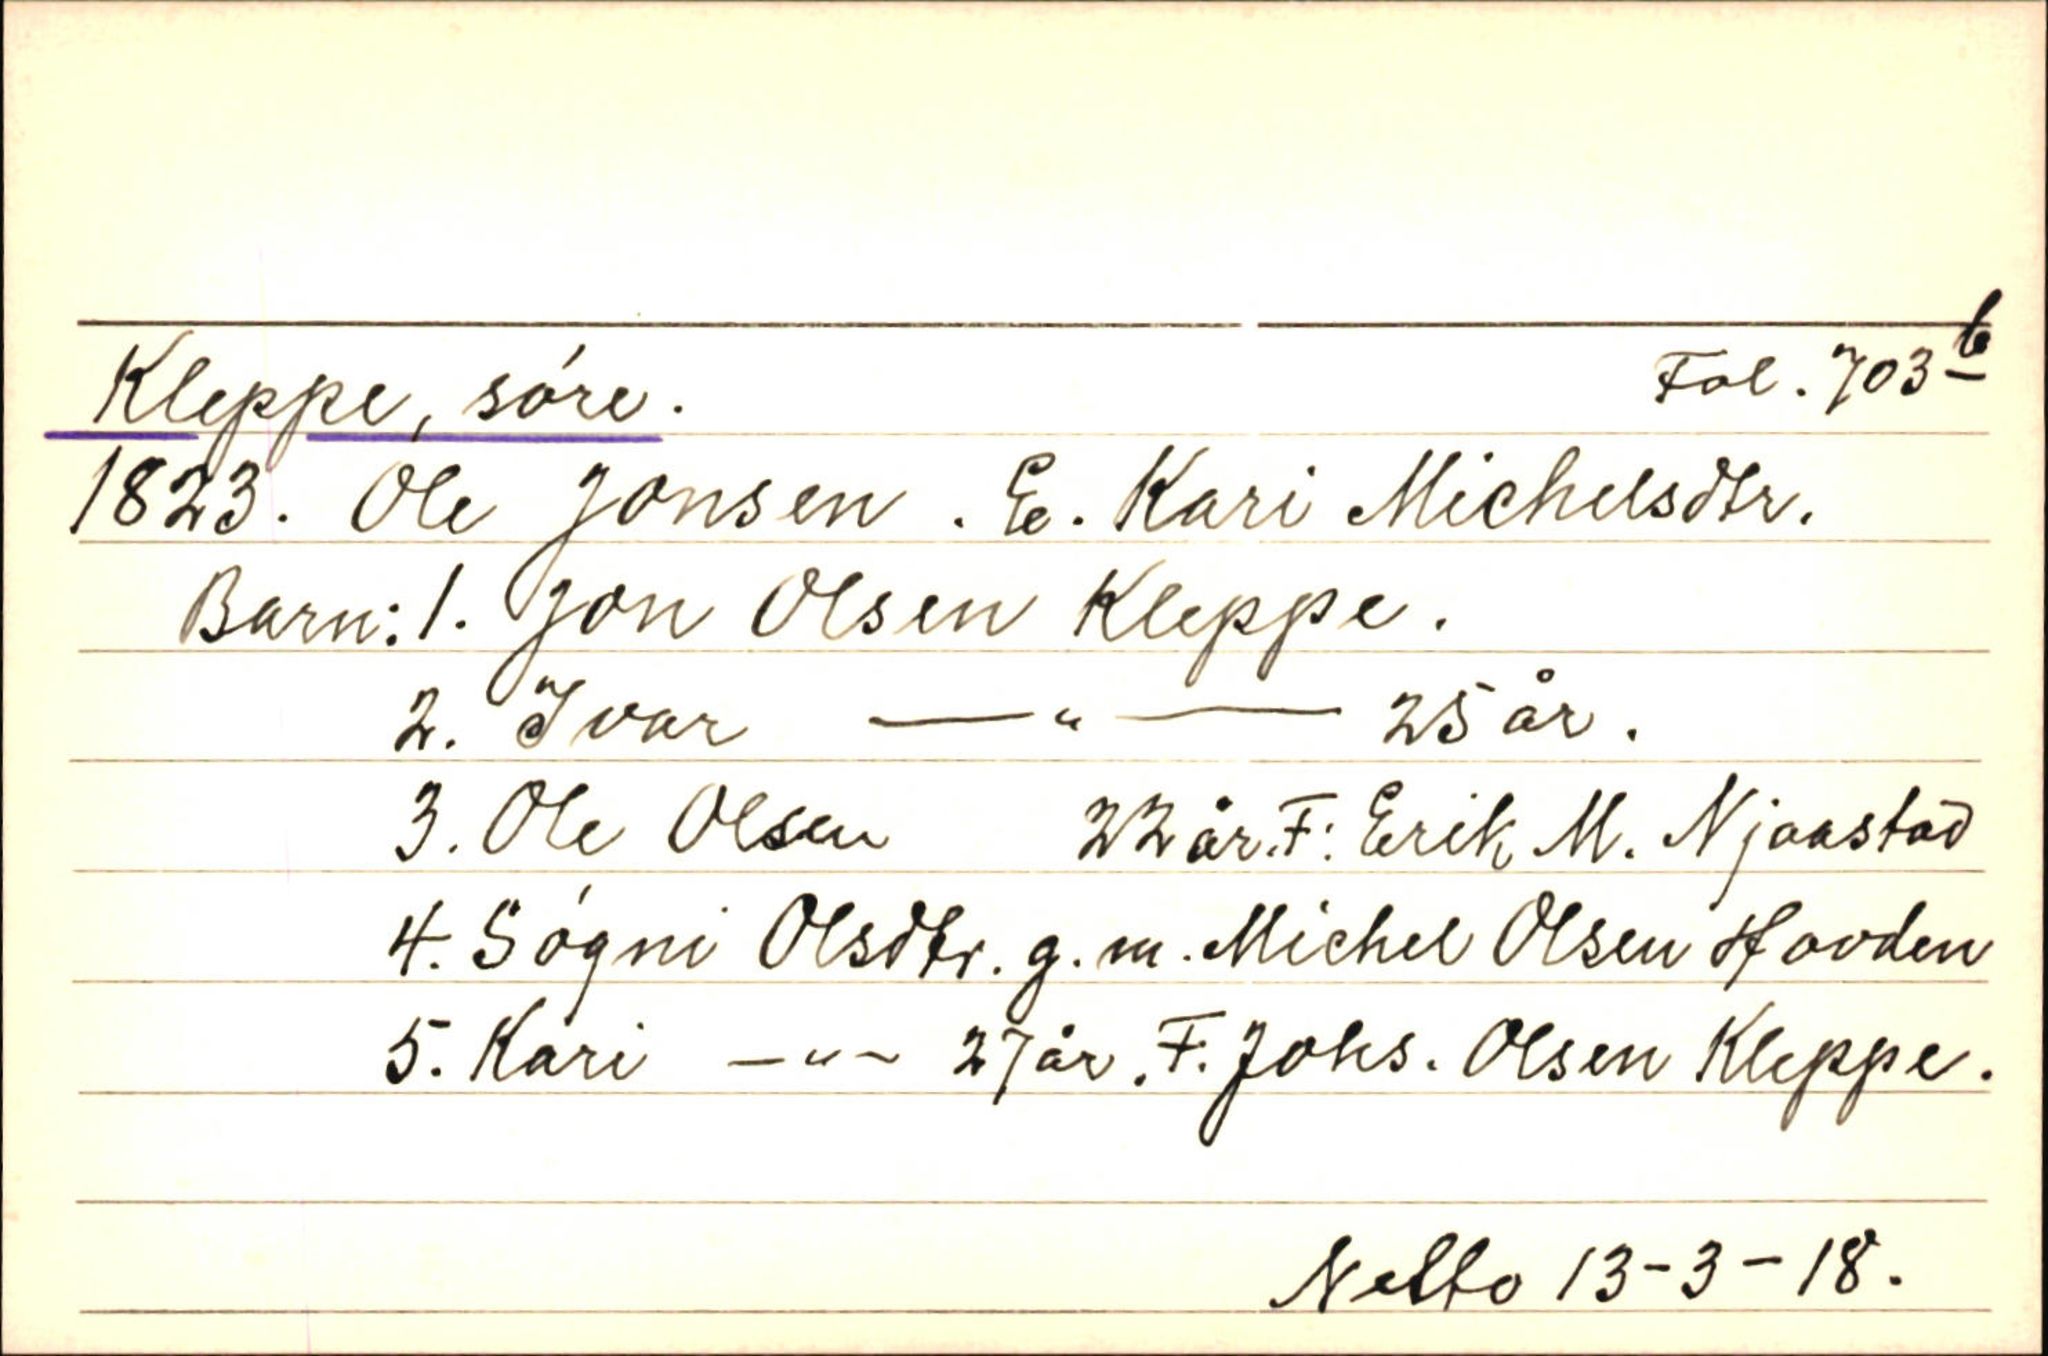 Kleppe, søre. Fol. 703b
1823. Ole Jonsen. E. Kari Michelsdtr.
Barn: 1. Jon Olsen Kleppe.
2. Ivar —"— 25 år.
3. Ole Olsen 22 år. F: Erik M. Njaastad
4. Søgni Olsdtr. g. m. Michel Olsen Hovden
5. Kari —"— 27 år. F. Johs. Olsen Kleppe.
Netto 13-3-18.